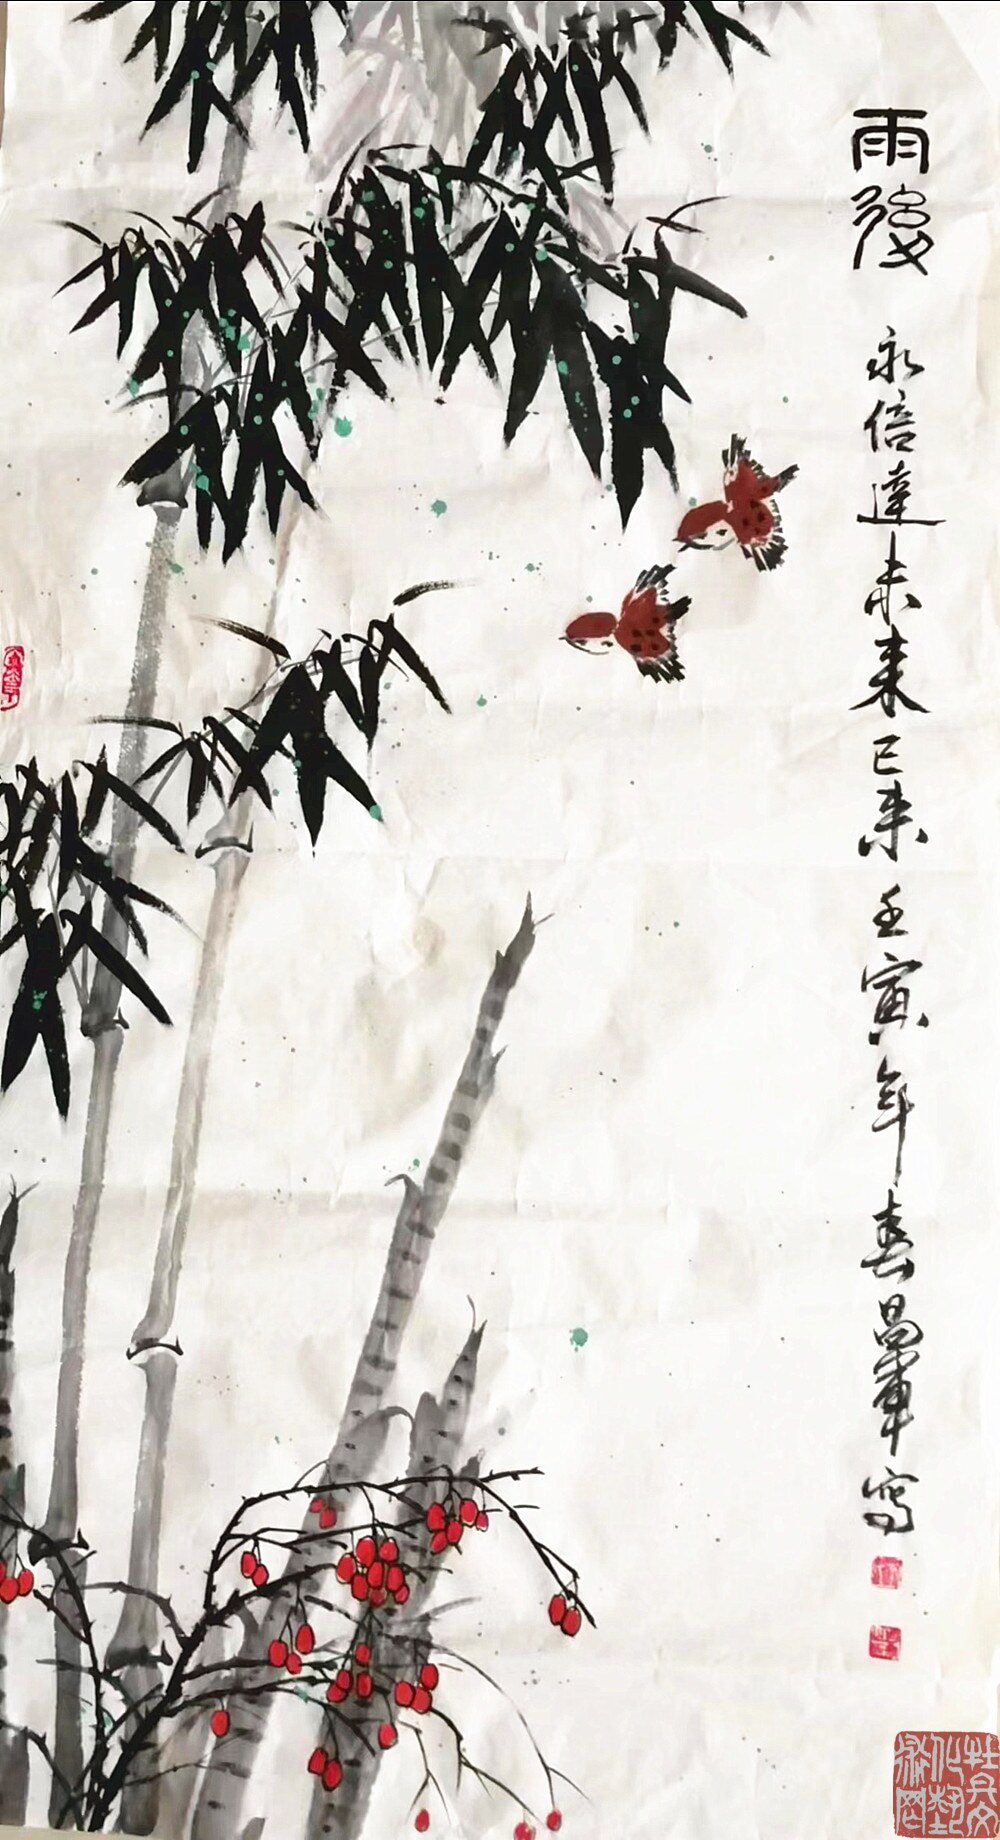 雨後
永信達未来已来壬寅年春昌軍寫